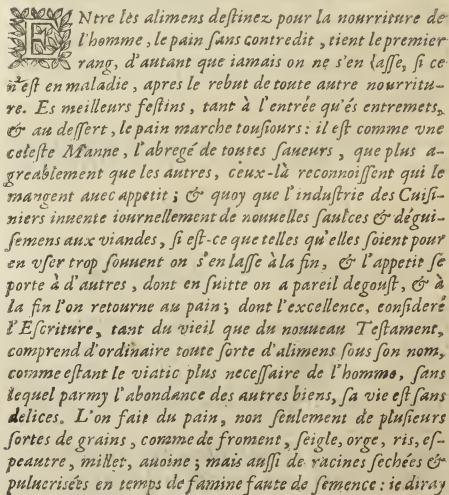 ENtre les alimens destinez pour la nourriture de
l'homme, le pain sans contredit, tient le premier
rang, d'autant que iamais on ne s'en lasse, si ce
n'est en maladie, apres le rebut de toute autre nourritu-
re. Es meilleurs festins, tant à l'entrée qu'és entremets,
& au dessert, le pain marche tousiours: il est comme vne
celeste Manne, l'abregé de toutes saueurs, que plus a-
greablement que les autres, ceux-là reconnoissent qui le
mangent auec appetit; & quoy que l'industrie des Cuisi-
niers inuente iournellement de nouuelles saulces & dégui-
semens aux viandes, si est-ce que telles qu'elles soient pour
en vser trop souuent on s'en lasse à la fin, & l'appetit se
porte à d'autres, dont en suitte on a pareil degoust, & à
la fin l'on retourne au pain; dont l'excellence, consideré
l'Escriture, tant du vieil que du nouueau Testament,
comprend d'ordinaire toute sorte d'alimens sous son nom,
comme estant le viatic plus necessaire de l'homme, sans
lequel parmy l'abondance des autres biens, sa vie est sans
delices. L'on fait du pain, non seulement de plusieurs
sortes de grains, comme de froment, seigle, orge, ris, es-
peautre, millet, auoine; mais aussi de racines sechées &
puluerisées en temps de famine faute de semence: ie diray